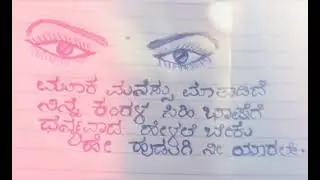 ಮೂಕ ಮನಸ್ಸು ಮಾತಾಡಿದೆ
ನಿನ್ನ ಕಂಗಳ ಸಿಹಿ ಭಾಷೆಗೆ
ಧನ್ಯವಾದ ಹೇಳಲೆ ಬೇಕು
ಹೇ ಹುಡುಗಿ ನೀ ಯಾರಲೆ